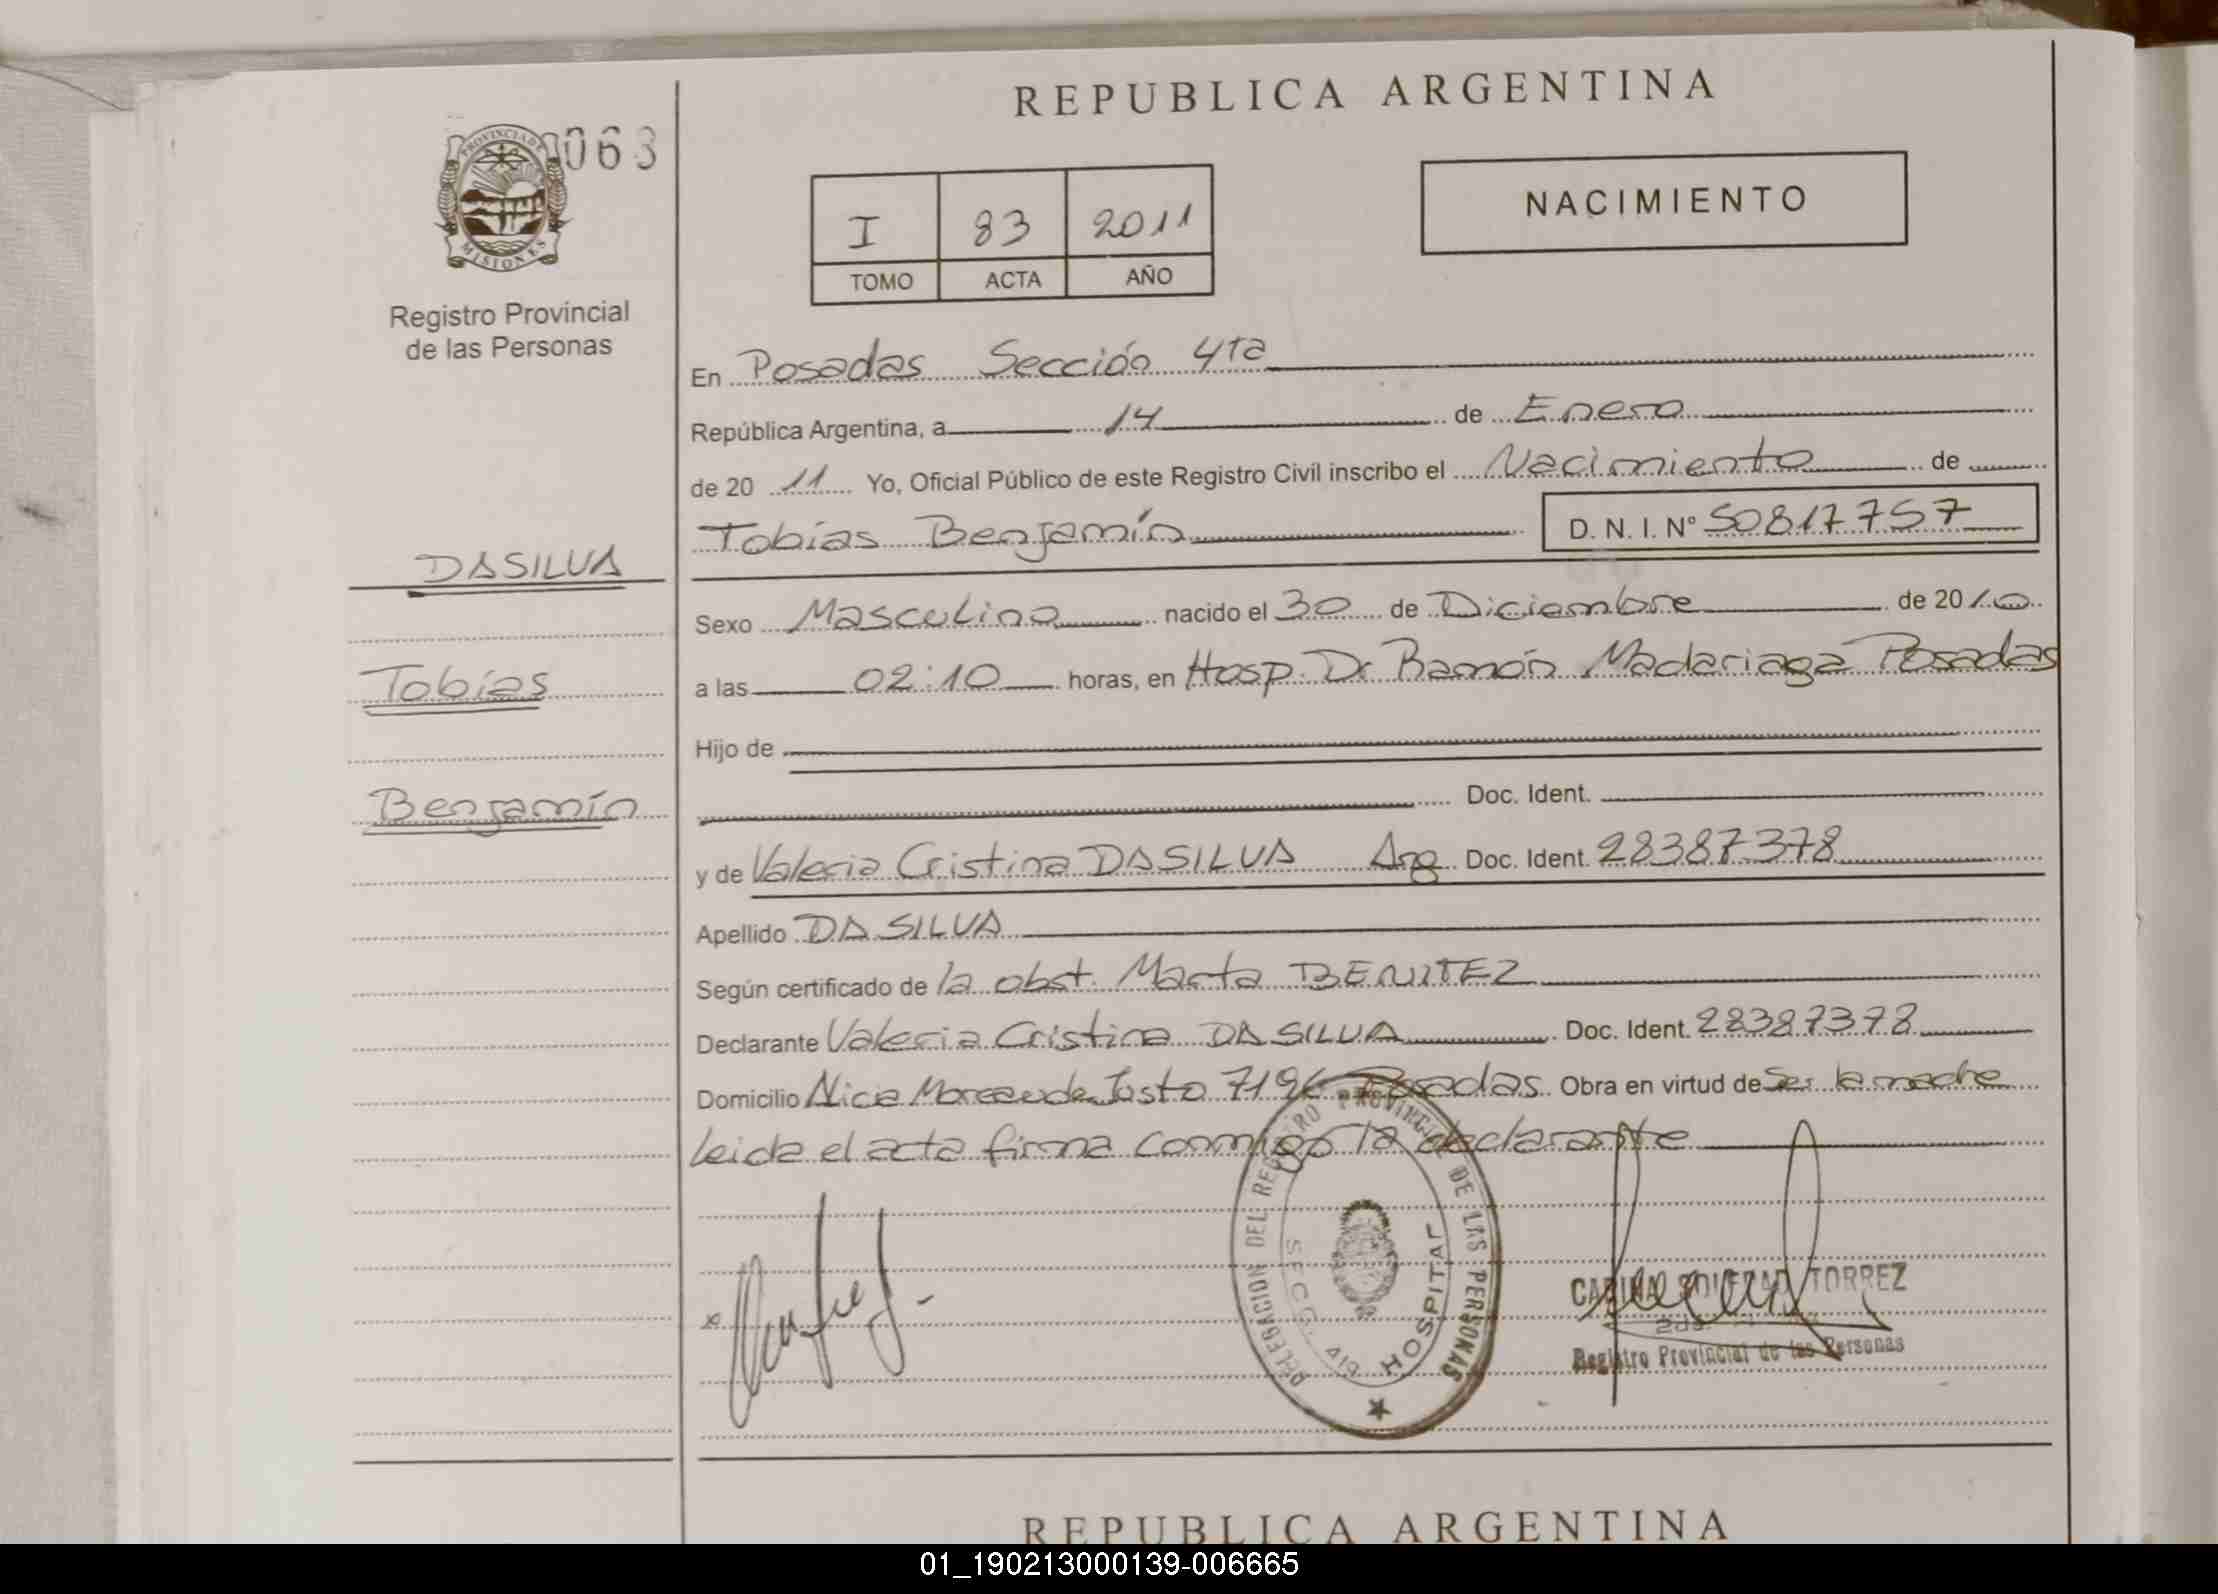 REPUBLICA ARGENTINA
PROVINCIA DE MISIONES
063
Registro Provincial
de las Personas
I 83 2011
TOMO ACTA AÑO
NACIMIENTO
En Posadas Sección 4ta
República Argentina, a 14 de Enero
de 20 11 Yo, Oficial Público de este Registro Civil inscribo el Nacimiento de
Tobías Benjamín D. N. I. Nº 50817757
DASILVA
Tobías
Benjamín
Sexo Masculino nacido el 30 de Diciembre de 2010
a las 02:10 horas, en Hosp. Dr Ramón Madariaga Posadas
Hijo de
Doc. Ident.
y de Valeria Cristina DASILVA Arg Doc. Ident. 28387378
Apellido DASILVA
Según certificado de la obst. Marta BENITEZ
Declarante Valeria Cristina DASILVA Doc. Ident. 28387378
Domicilio Alicia Moreau de Justo 7196 Posadas Obra en virtud de Ser la madre
Leida el acta firma conmigo la declarante
DELEGACION DEL REGISTRO PROVINCIAL DE LAS PERSONAS
SECC. 4ta HOSPITAL
CARINA SOLEDAD TORREZ
Registro Provincial de las Personas
REPUBLICA ARGENTINA
01_190213000139-006665